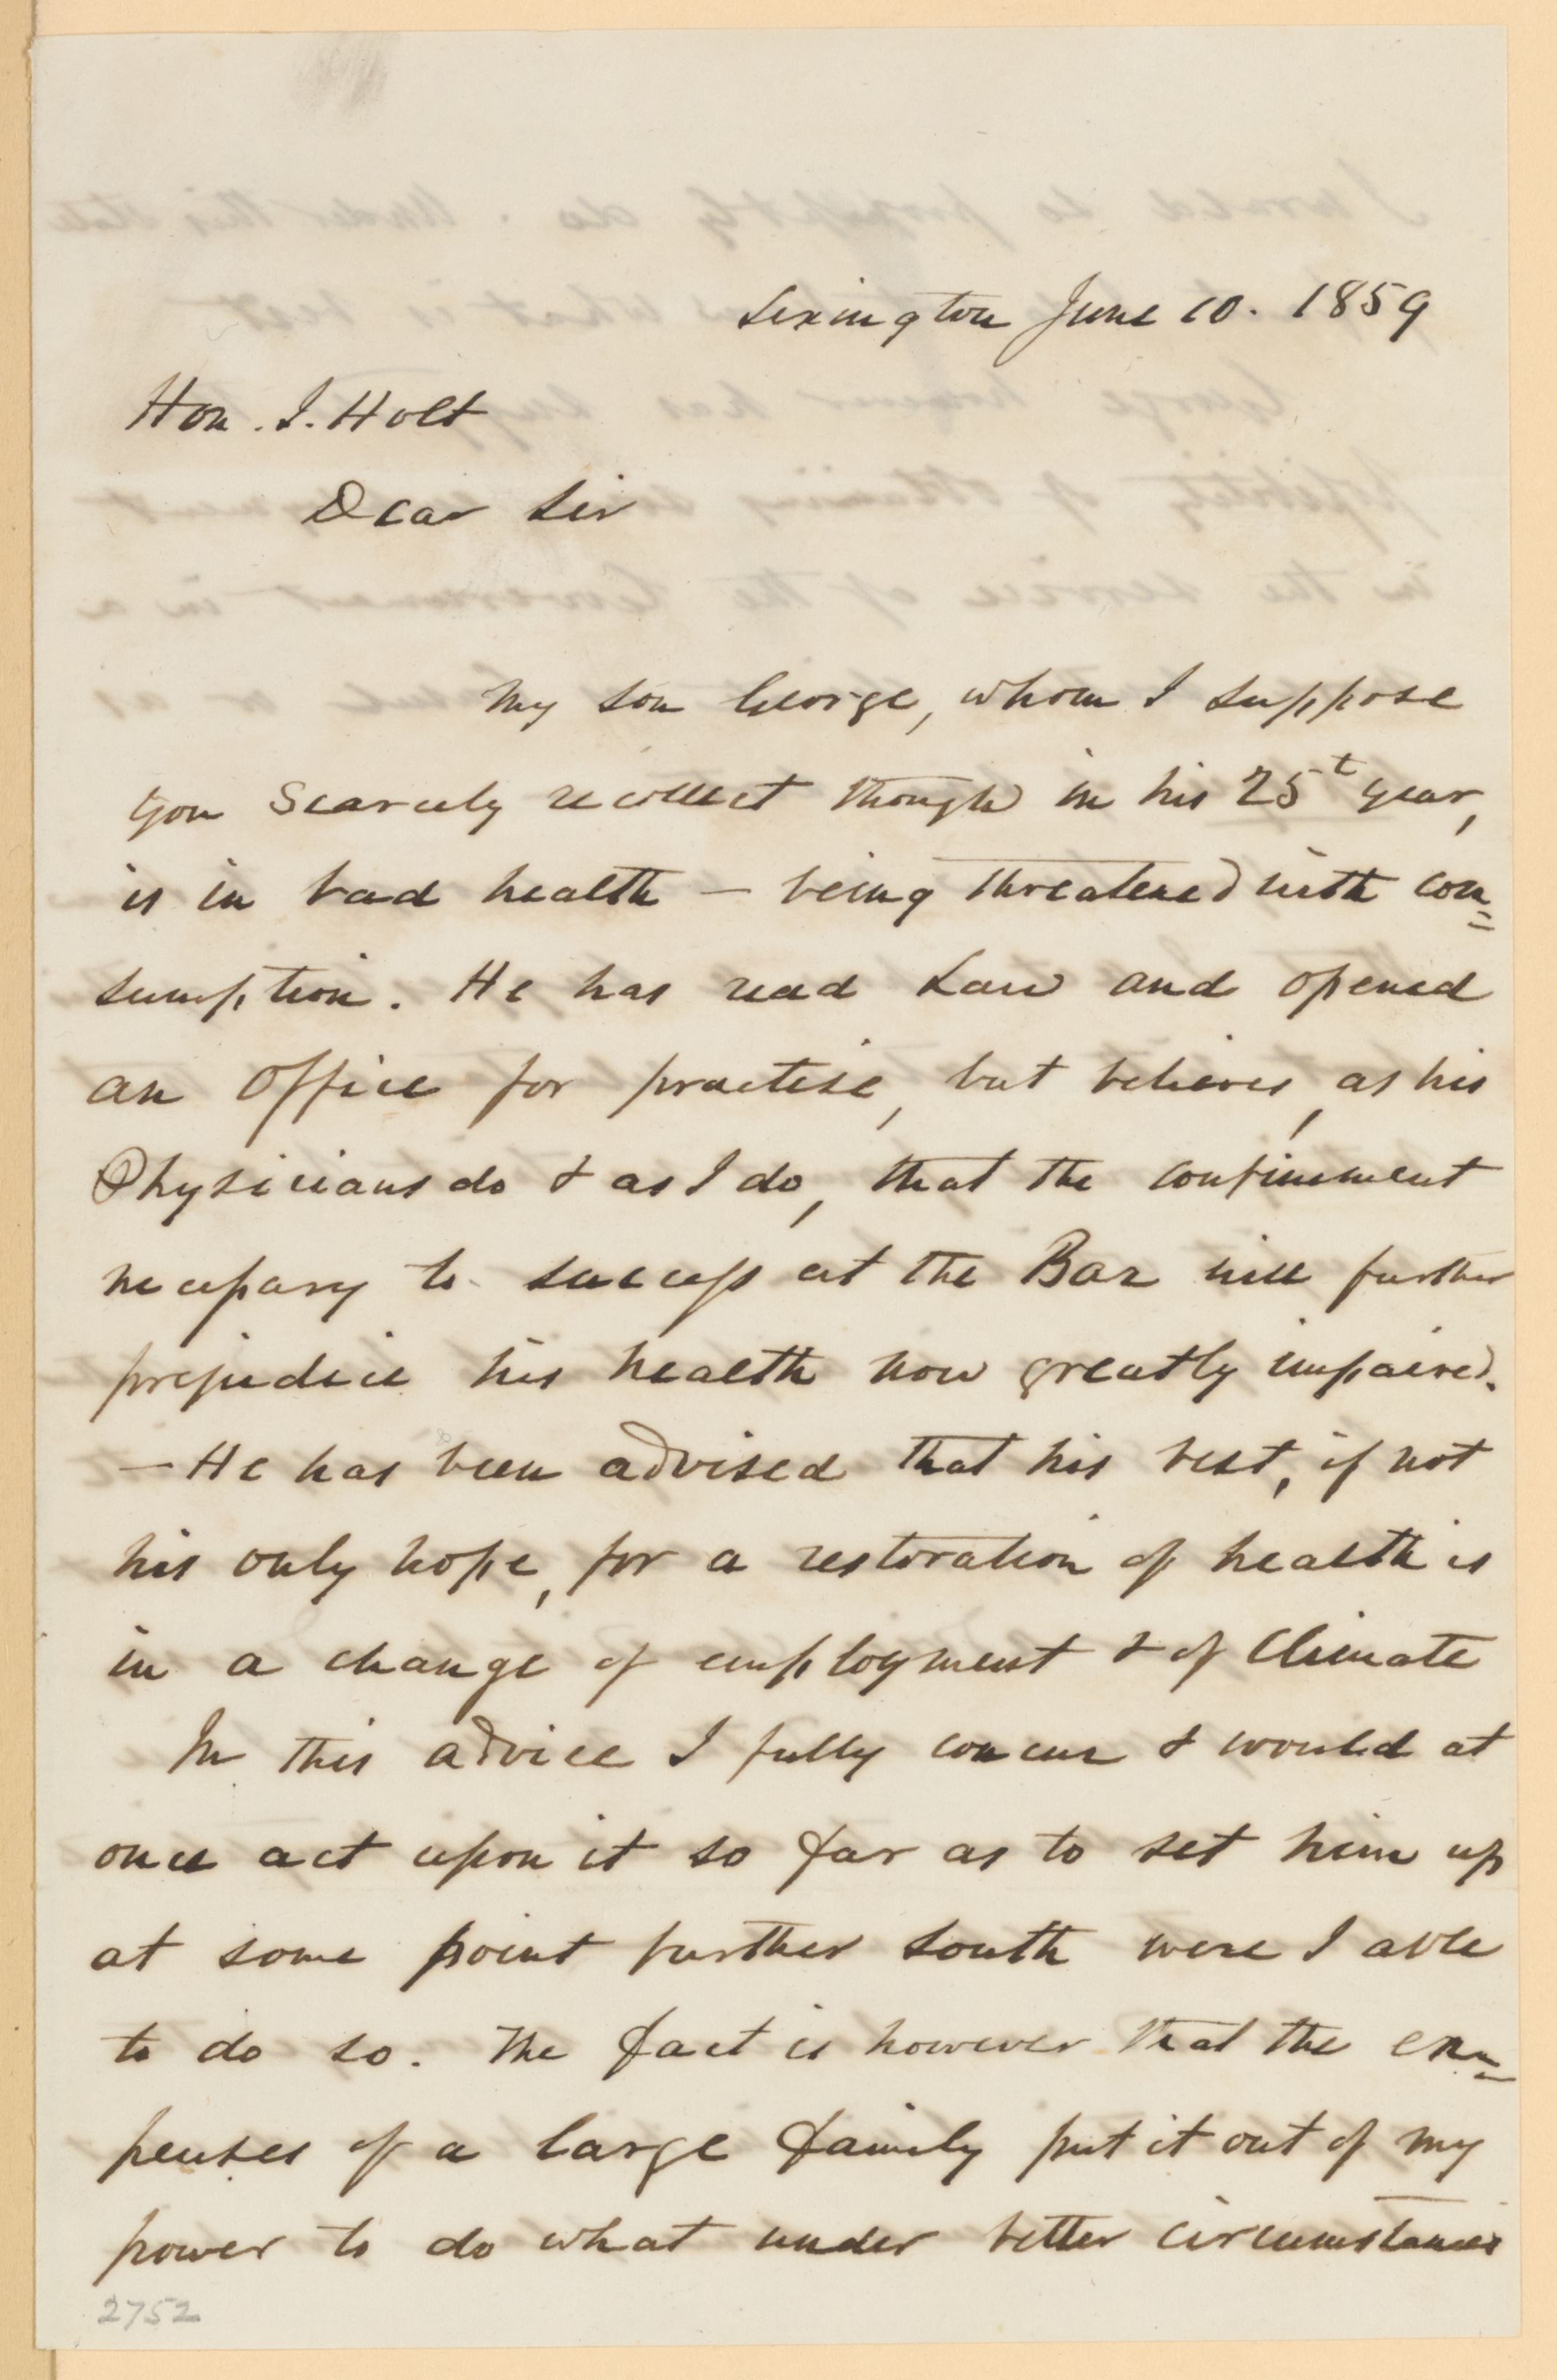 Lexington June 10. 1859
Hon. J. Holt
Dear Sir
My son George, whom I suppose
you scarcely recollect though in his 25t year,
is in bad health — being threatened with con=
sumption. He has read Law and opened
an office for practise, but believes, as his
Physicians do & as I do, that the confinement
necessary to success at the Bar will further
prejudice his health now greatly impaired.
— He has been advised that his best, if not
his only hope, for a restoration of health is
in a change of employment & of Climate
In this advice I fully concur & would at
once act upon it so far as to set him up
at some point further south were I able
to do so. The fact is however that the ex=
penses of a large family put it out of my
power to do what under better circumstances
2752